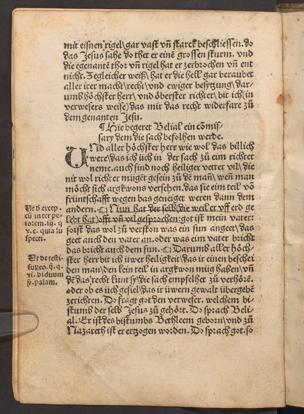 mit eisnen rigel gar vast vñ starck beschliessen. do
das Jesus sahe do thet er einē grossen sturm. vnd
die egenante thor vñ rigel hat er zerbrochen vñ ent
nicht. Zegleicher weiß hat er die hell gar beraubet
aller irer macht recht vnd ewiger besitzung. dar-
umb höchster herr vnd öberster richter. bit ich in
verwesers weise das mir das recht widerfare zů
dem genanten Jesu.
¶ Hie begeret Belial ein cōmis-
sary dem die sach befolhen werde.
Vnd aller höchster herr wie wol das billich
were das ich üch in der sach zů eim richter
neme. auch sind noch heiliger vetter vil die
mit wol richter migen gesin zů
möcht sich argkwons versehen das sie eim teil vō
früntschafft wegen bas geneiget weren dann dem
andern. ¶ Nun hat der selb die weil er vff erd ge
lebt hat offt vñ vil gesprochen got ist mein vater.
sagt das wol zů verston was ein sun anget das
get auch den vater an. oder was ein vater bricht
das bricht auch dem sun. ¶ Darumb aller höch
ster herr bit ich üwer heiligkeit das ir einen beschei
den man den kein teil in argkwon mig haben vñ
der das recht kunt sy die sach empfelhet zů verhörē.
oder ob es üch gefiel das ir üwern gewalt übergebē
zerichten. Do fragt got den verweser. welchem bi-
stumb der selb Jesus zů gehört. Do sprach Beli-
al. Er ist des bistumbs Bethleem geborn vnd zů
Nazareth ist er ertzogen worden. Do sprach got. so